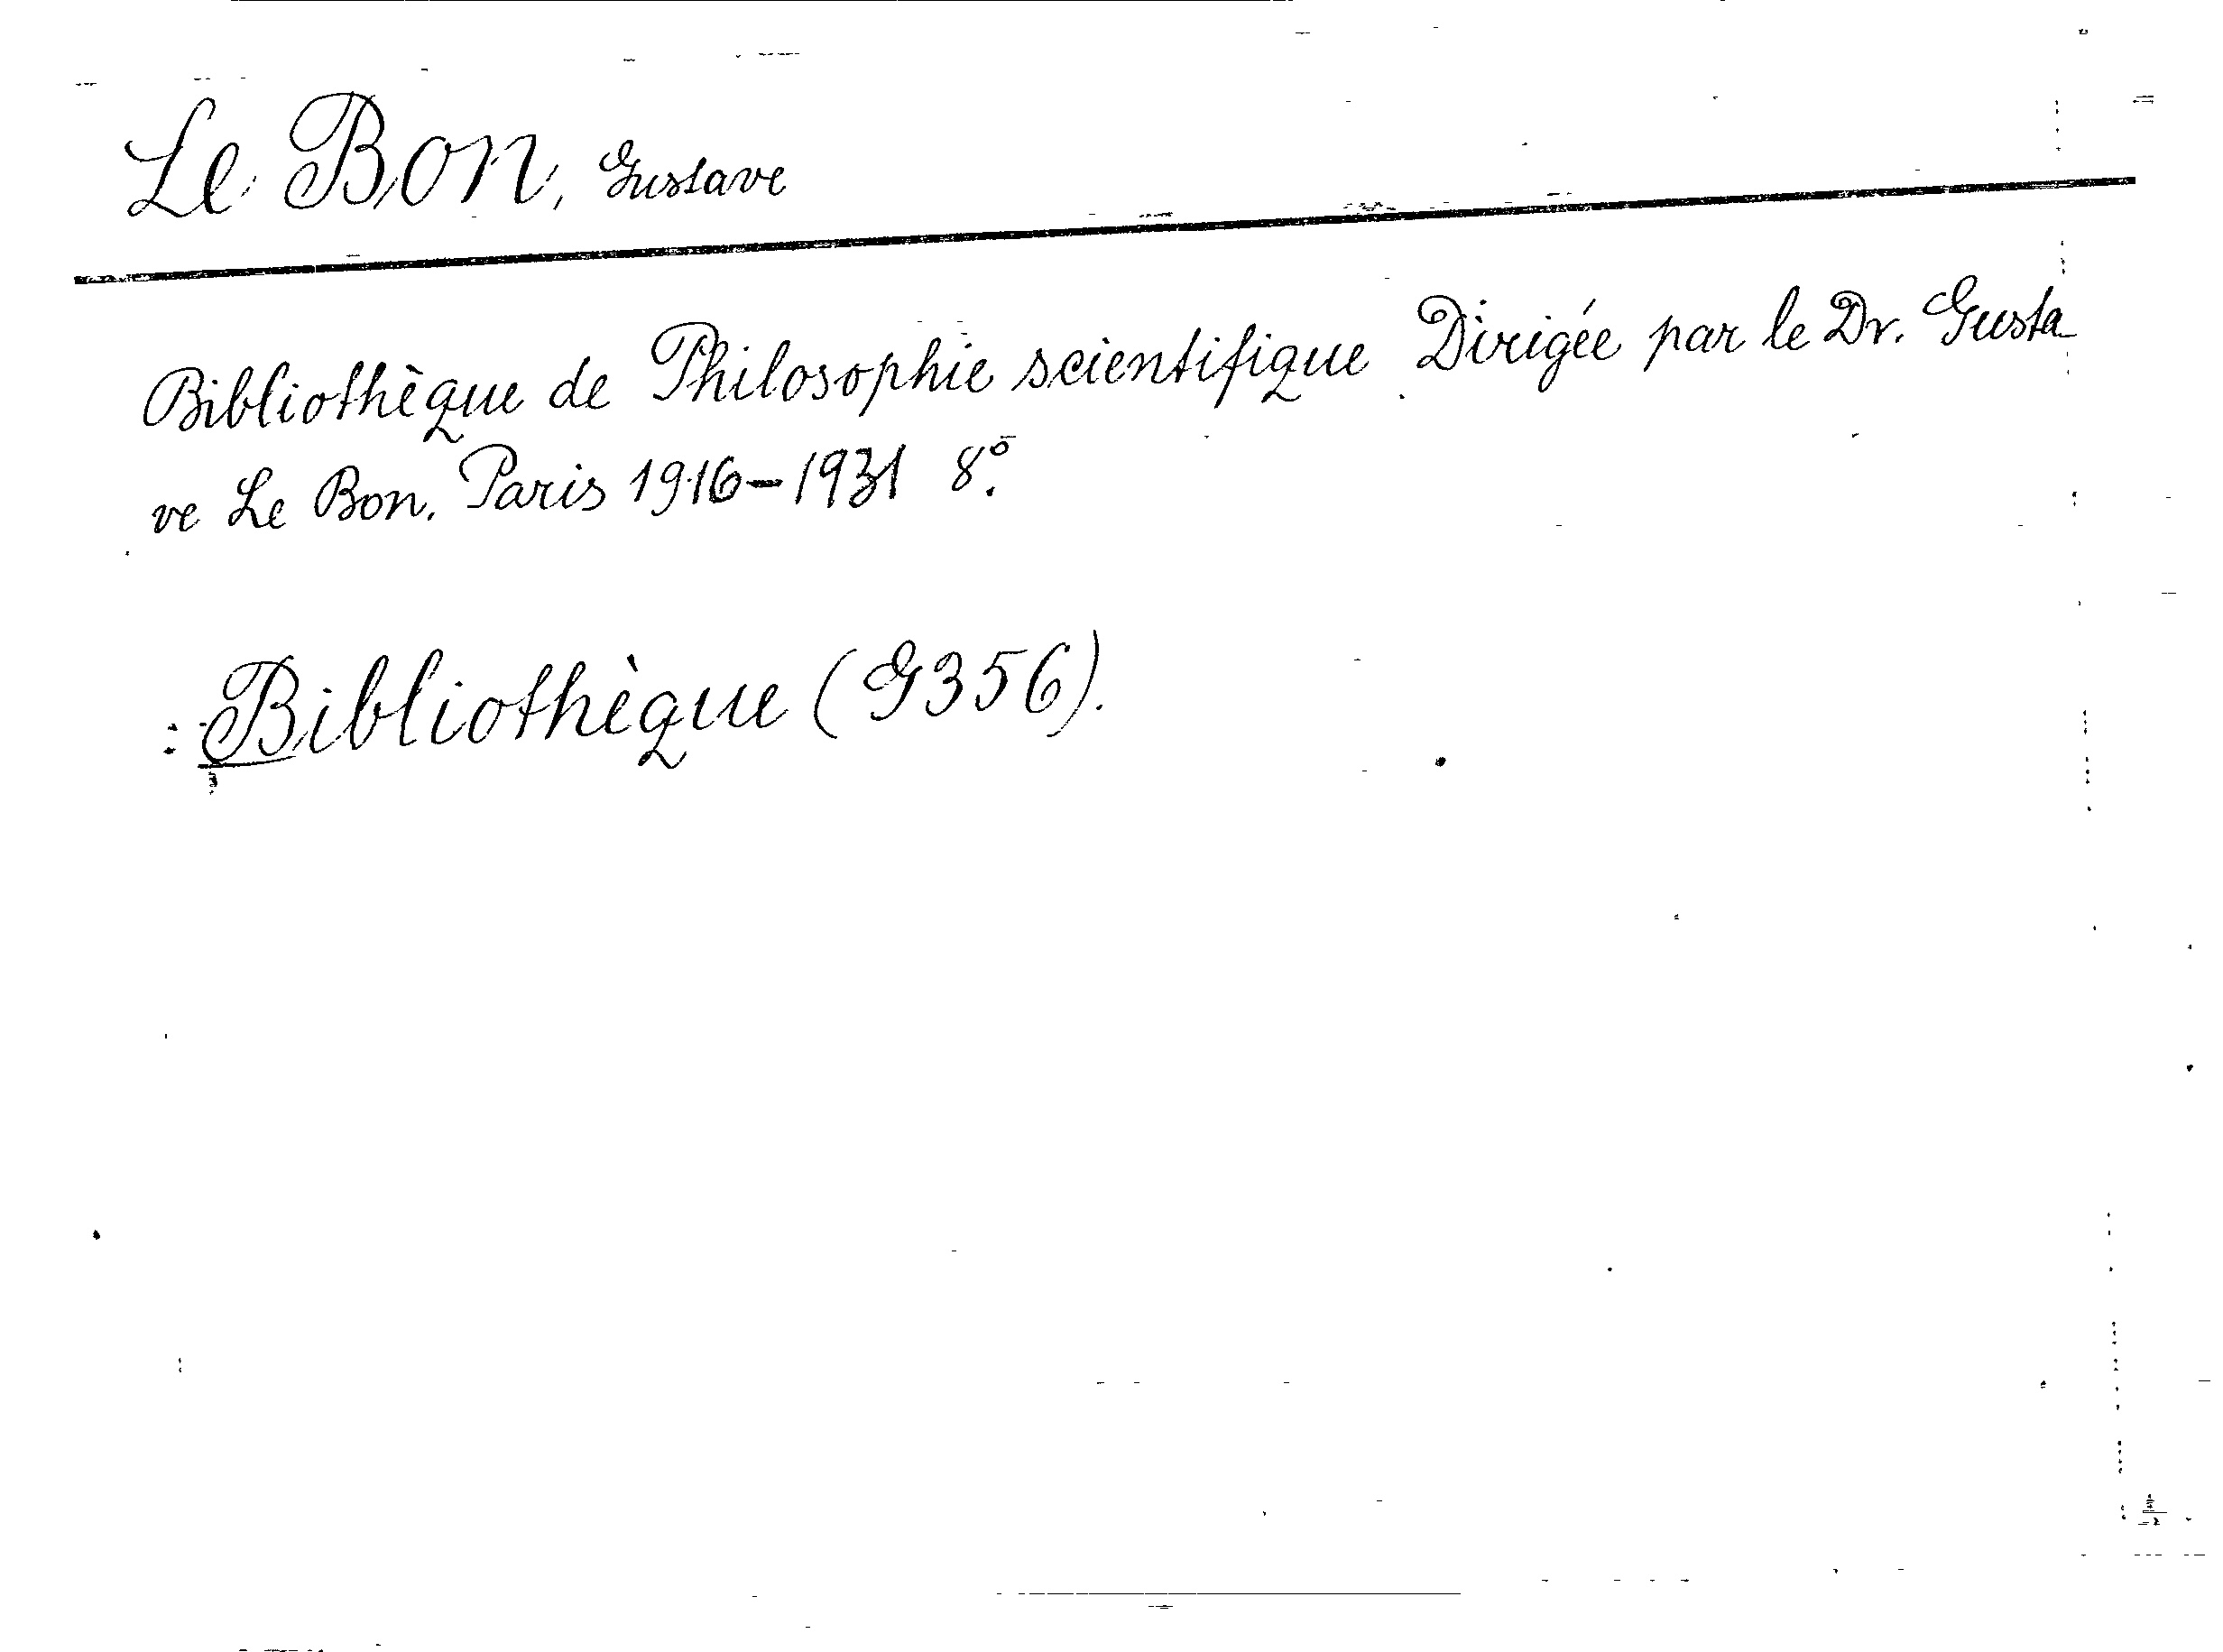 Le Bon, Gustave
Bibliothèque de Philosophie scientifique Dirigée par le Dr. Gusta
ve Le Bon. Paris 1916-1931 8º.
: Bibliothèque (G356).